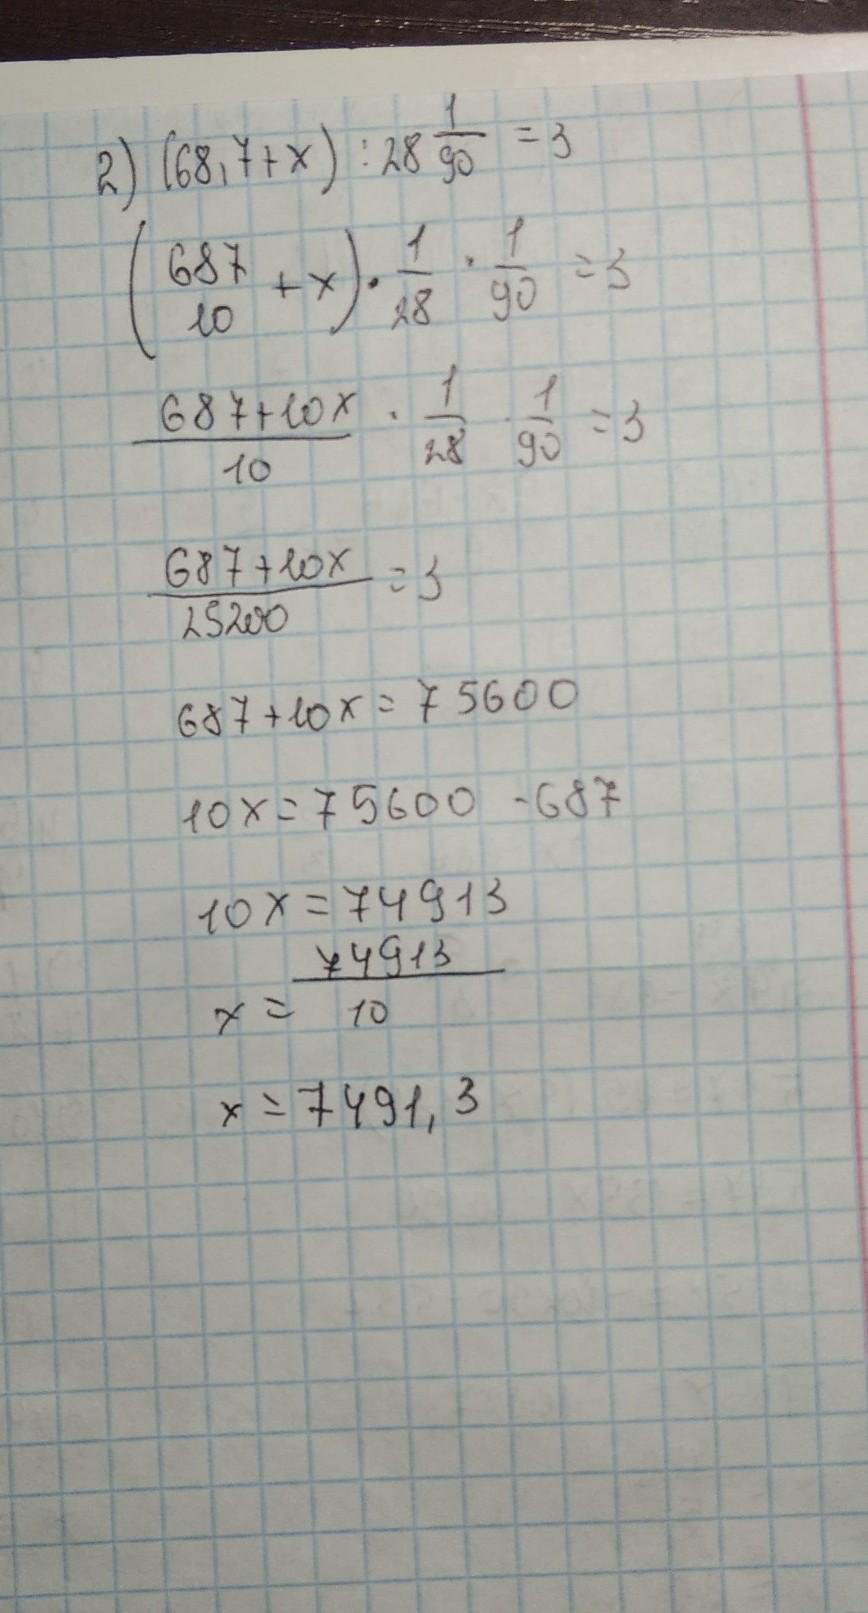 2) (68,7+x) : 28 1/90 = 3
(687/10 + x) · 1/28 · 1/90 = 3
687+10x/10 · 1/28 · 1/90 = 3
687+10x/25200 = 3
687+10x = 75600
10x = 75600 - 687
10x = 74913
x = 74913/10
x = 7491,3